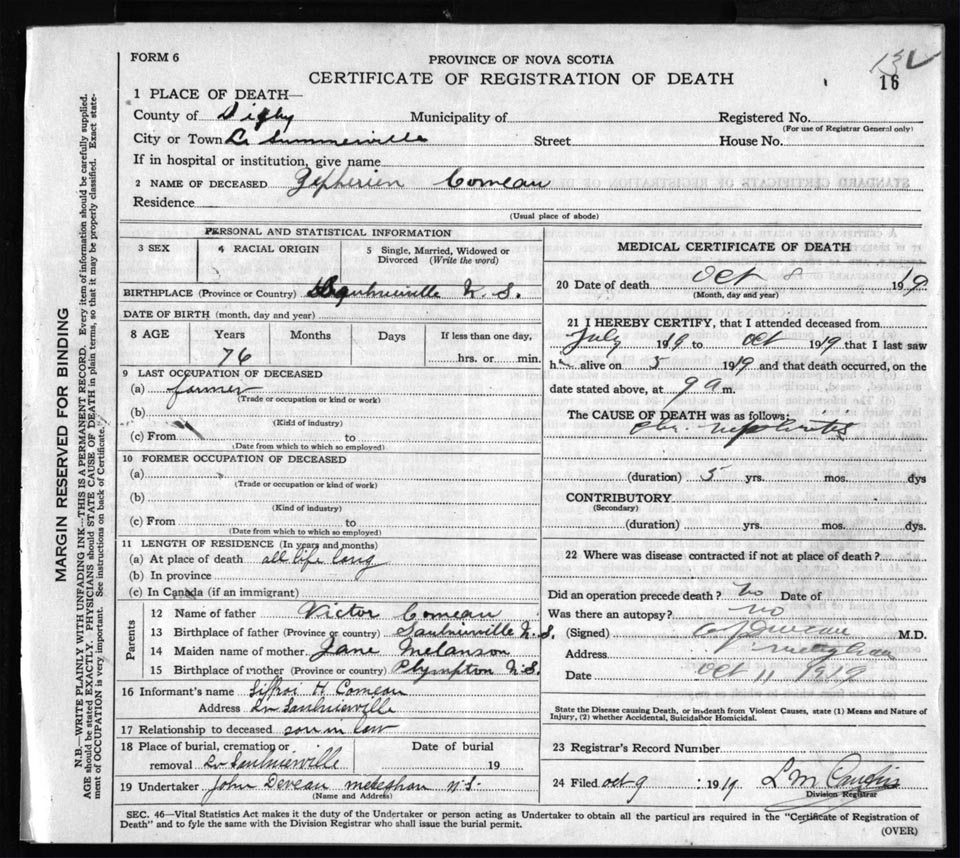 FORM 6
PROVINCE OF NOVA SCOTIA
CERTIFICATE OF REGISTRATION OF DEATH
132
16
1 PLACE OF DEATH—
County of Digby Municipality of Registered No.
(For use of Registrar General only)
City or Town L. Summerville Street House No.
If in hospital or institution, give name
2 NAME OF DECEASED Zepherien Comeau
Residence
(Usual place of abode)
PERSONAL AND STATISTICAL INFORMATION
3 SEX
4 RACIAL ORIGIN
5 Single, Married, Widowed or Divorced (Write the word)
BIRTHPLACE (Province or Country) Saulnierville N. S.
DATE OF BIRTH (month, day and year)
8 AGE Years Months Days If less than one day,
76 hrs. or min.
9 LAST OCCUPATION OF DECEASED
(a) farmer
(Trade or occupation or kind or work)
(b)
(Kind of industry)
(c) From to
(Date from which to which so employed)
10 FORMER OCCUPATION OF DECEASED
(a)
(Trade or occupation or kind of work)
(b)
(Kind of industry)
(c) From to
(Date from which to which so employed)
11 LENGTH OF RESIDENCE (In years and months)
(a) At place of death all life long
(b) In province
(c) In Canada (if an immigrant)
Parents
12 Name of father Victor Comeau
13 Birthplace of father (Province or country) Saulnierville N.S.
14 Maiden name of mother Jane Melanson
15 Birthplace of mother (Province or country) Plympton N.S.
16 Informant's name H Comeau
Address Lr Saulnierville
17 Relationship to deceased son in law
18 Place of burial, cremation or Date of burial
removal Lr Saulnierville 19
19 Undertaker John Deveau meteghan N.S.
(Name and Address)
MEDICAL CERTIFICATE OF DEATH
20 Date of death Oct 8 1919
(Month, day and year)
21 I HEREBY CERTIFY, that I attended deceased from
July 1919 to Oct 1919 that I last saw
h alive on 5 1919 and that death occurred, on the
date stated above, at 9 a m.
The CAUSE OF DEATH was as follows:
Chr. nephritis
(duration) 5 yrs. mos. dys
CONTRIBUTORY
(Secondary)
(duration) yrs. mos. dys.
22 Where was disease contracted if not at place of death?
Did an operation precede death? no Date of
Was there an autopsy? no
(Signed) Deveau M.D.
Address Meteghan
Date Oct 11 1919
State the Disease causing Death, or in death from Violent Causes, state (1) Means and Nature of
Injury, (2) whether Accidental, Suicidal or Homicidal.
23 Registrar's Record Number
24 Filed oct 9 1919 L M
Division Registrar
SEC. 46—Vital Statistics Act makes it the duty of the Undertaker or person acting as Undertaker to obtain all the particulars required in the "Certificate of Registration of
Death" and to fyle the same with the Division Registrar who shall issue the burial permit.
(OVER)
MARGIN RESERVED FOR BINDING
N.B.—WRITE PLAINLY WITH UNFADING INK—THIS IS A PERMANENT RECORD. Every item of information should be carefully supplied.
AGE should be stated EXACTLY. PHYSICIANS should STATE CAUSE OF DEATH in plain terms, so that it may be properly classified. Exact state-
ment of OCCUPATION is very important. See instructions on back of Certificate.